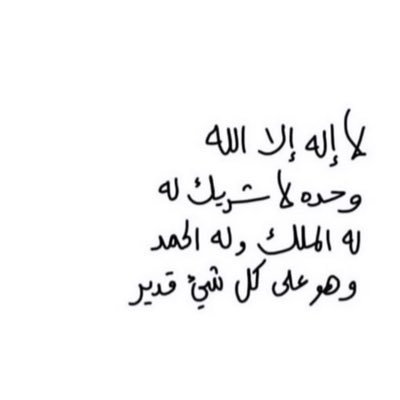 لا إله إلا الله
وحده لا شريك له
له الملك وله الحمد
وهو على كل شيئ قدير